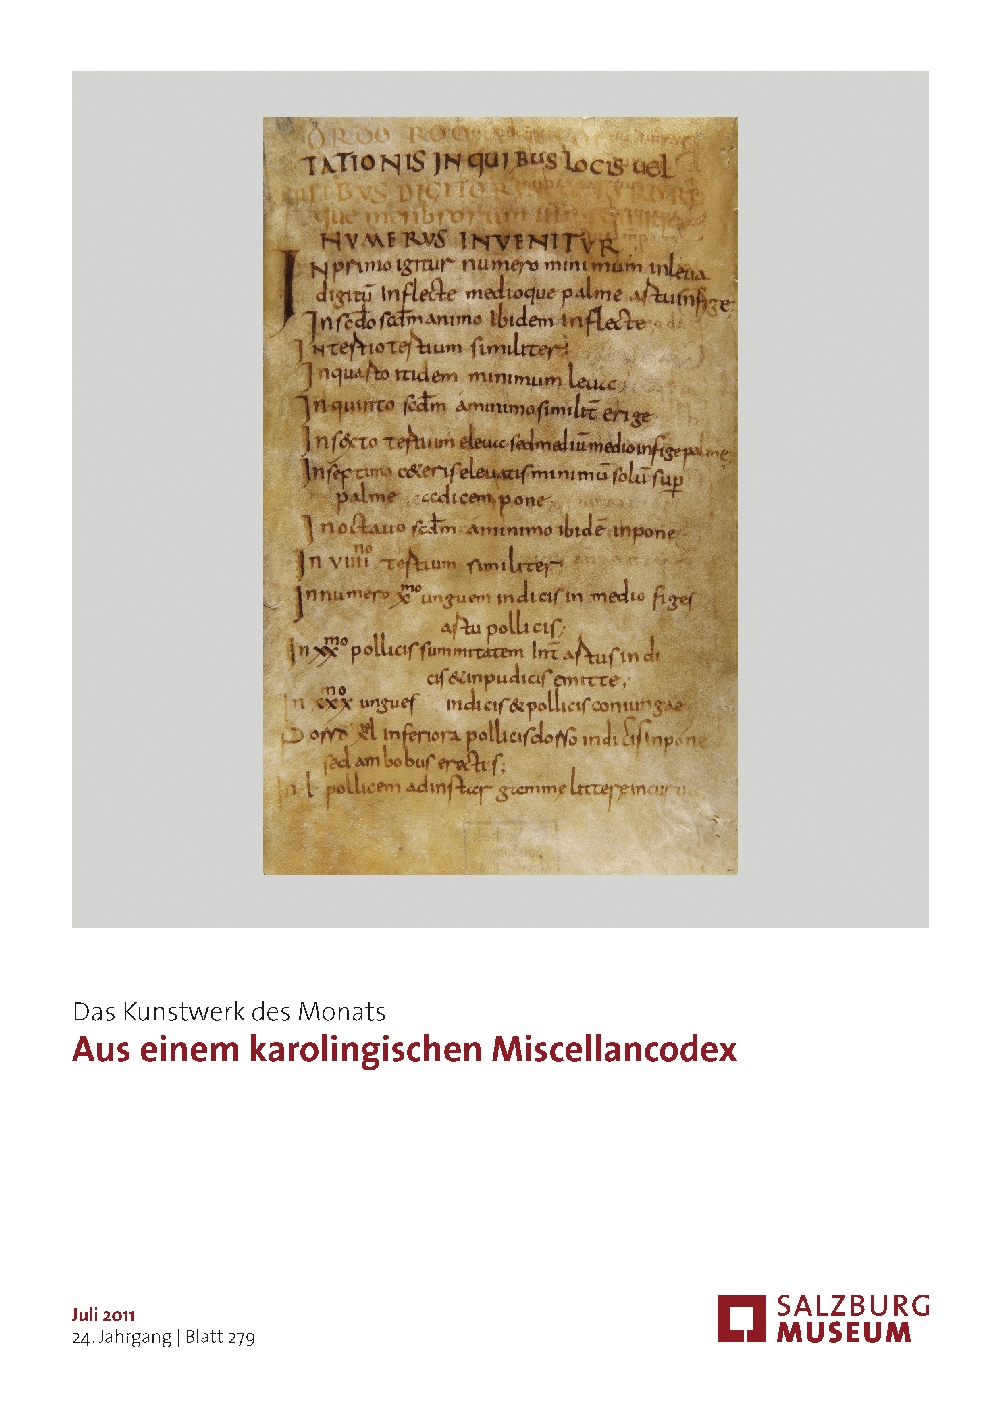 ORDO ROM
TATIONIS IN QUIBUS locis uel
LIBUS DIGITORUM
que membrorum
NUMERUS INVENITUR
IN primo igitur numero minimum inleua
digitū inflecte medioque palme astu infige
In scdo scdm a minimo ibidem inflecte
IN tertio tertium similiter;
In quarto itidem minimum leua
In quinto scdm a minimo similit erige
In sexto tertium eleua sed mediū medio infige palme
In septimo ceteris eleuatis minimū solū sup
palme radicem pone
In octauo scdm a minimo ibidē inpone
In viiii no tertium similiter
In numero x mo unguem indicis in medio figes
artu pollicis;
In xx mo pollicis summitatem int artus indi
cis & inpudicis emitte;
In xxx mo ungues indicis & pollicis coniunge
inferiora pollicis dorso indicis inpone
sed ambobus erectis;
In l pollicem ad instar gamme littere incurua
Das Kunstwerk des Monats
Aus einem karolingischen Miscellancodex
Juli 2011
24. Jahrgang | Blatt 279
SALZBURG
MUSEUM